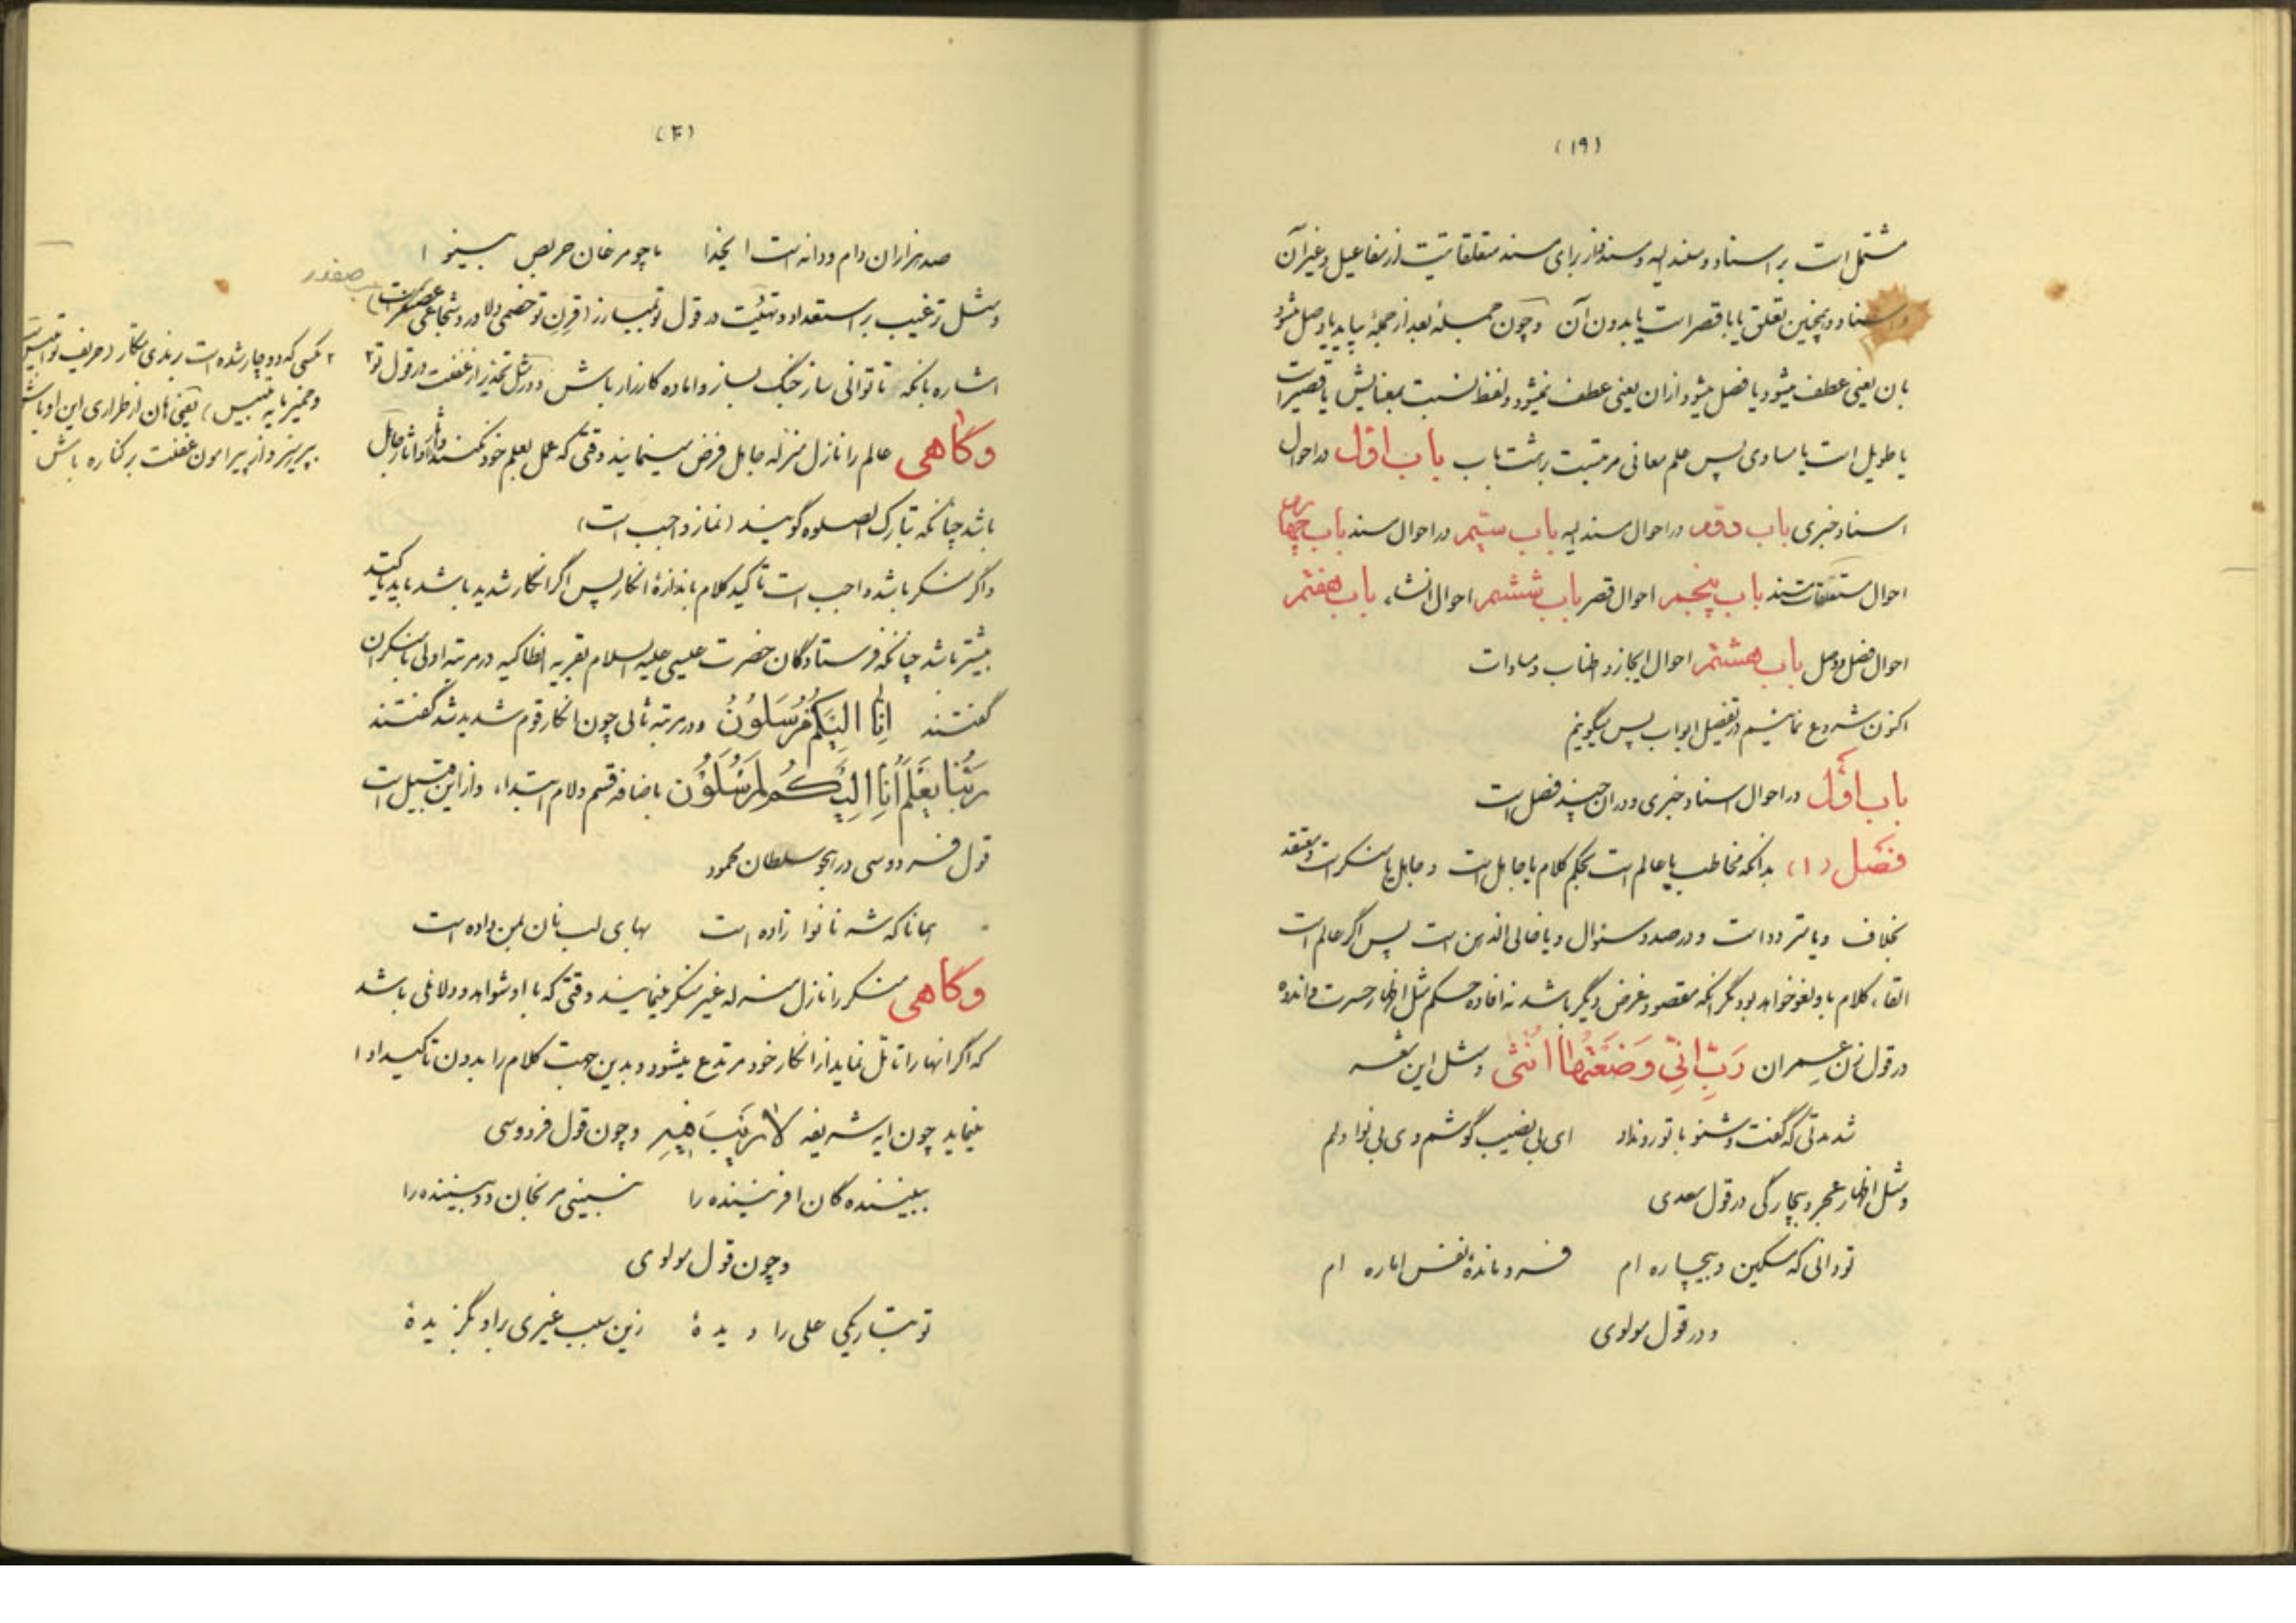 (۱۹)
مشتمل است بر اسناد و مسند الیه و مسند و نیز برای مسند متعلقاتیست از مفاعیل و غیر آن
و اسناد و همچنین تعلق یا با قصر است یا بدون آن و چون جمله بعد از جمله بیاید یا وصل میشود
بان یعنی عطف میشود یا فصل میشود از ان یعنی عطف نمیشود و لفظ نسبت بمعنایش یا قصیر است
یا طویل است یا مساوی پس علم معانی مرتبست بر هشت باب باب اول در احوال
اسناد خبری باب دوم در احوال مسند الیه باب سیم در احوال مسند باب چهارم
احوال متعلقات مسند باب پنجم احوال قصر باب ششم احوال انشاء باب هفتم
احوال فصل و وصل باب هشتم احوال ایجاز و اطناب و مساوات
اکنون شروع نمائیم در تفصیل ابواب پس میگوئیم
باب اول در احوال اسناد خبری و در ان چند فصل است
فصل (۱) بدانکه مخاطب یا عالم است بحکم کلام یا جاهل است و جاهل یا منکر است و معتقد
بخلاف و یا متردد است و در صدد سئوال و یا خالی الذهن است پس اگر عالم است
القاء کلام باو لغو خواهد بود مگر انکه مقصود و غرض دیگر باشد نه افاده حکم مثل اظهار حسرت و اندوه
در قول زن عمران رَبِّ اِنِّی وَضَعْتُهَا اُنْثی و مثل این شعر
شد مدتی که گفت و شنو با تو رو نداد ای بی نصیب گوشم و ی بی نوا دلم
و مثل اظهار عجز و بیچارگی در قول سعدی
تو دانی که مسکین و بیچاره ام فرومانده نفس اماره ام
و در قول مولوی
(۲۰)
صد هزاران دام و دانه است ایخدا ما چو مرغان حریص بینوا
و مثل ترغیب بر استعداد و تهیئت در قول تو بمبارز (قرن تو خصمی دلاور و شجاعی است)
صفدر
اشاره بانکه تا توانی ساز جنگ بساز و اماده کارزار باش و در مثل تحذیر از غفلت در قول تو ۲
۲ بکسی که دوچار شده است برندی مکار (حریف تو ابلیس است
و خمیر مایه تلبیس) یعنی هان از طراری این اوباش
بپرهیز و از پیرامون غفلت بر کناره باش
وگاهی عالم را نازل منزله جاهل فرض مینمایند وقتی که عمل بعلم خود نکند و اثار او اثار جاهل
باشد چنانکه بتارک الصلوه گویند (نماز واجب است)
و اگر منکر باشد واجب است تاکید کلام باندازه انکار پس اگر انکار شدید باشد باید تاکید
بیشتر باشد چنانکه فرستادگان حضرت عیسی علیه السلام بقریه انطاکیه در مرتبه اولی بمنکران
گفتند اِنَّا اِلَیْکُمْ مُرْسَلُوْنُ و در مرتبه ثانی چون انکار قوم شدید شد گفتند
رَبُّنَا یَعْلَمُ اِنَّا اِلَیْکُمْ لَمُرْسَلُوْن باضافه قسم و لام ابتداء و از این قبیل است
قول فردوسی در هجو سلطان محمود
همانا که شه نانوا زاده است بهای لب نان بمن داده است
وگاهی منکر را نازل منزله غیر منکر مینمایند وقتی که با او شواهد و دلائلی باشد
که اگر انها را تامل نماید از انکار خود مرتدع میشود و بدین جهت کلام را بدون تاکید ادا
مینماید چون ایه شریفه لا رَیْبَ فِیْهِ و چون قول فردوسی
ببینندگان افریننده را نبینی مرنجان دو بیننده را
و چون قول مولوی
تو بتاریکی علی را دیدهٔ زین سبب غیری براو بگزیدهٔ